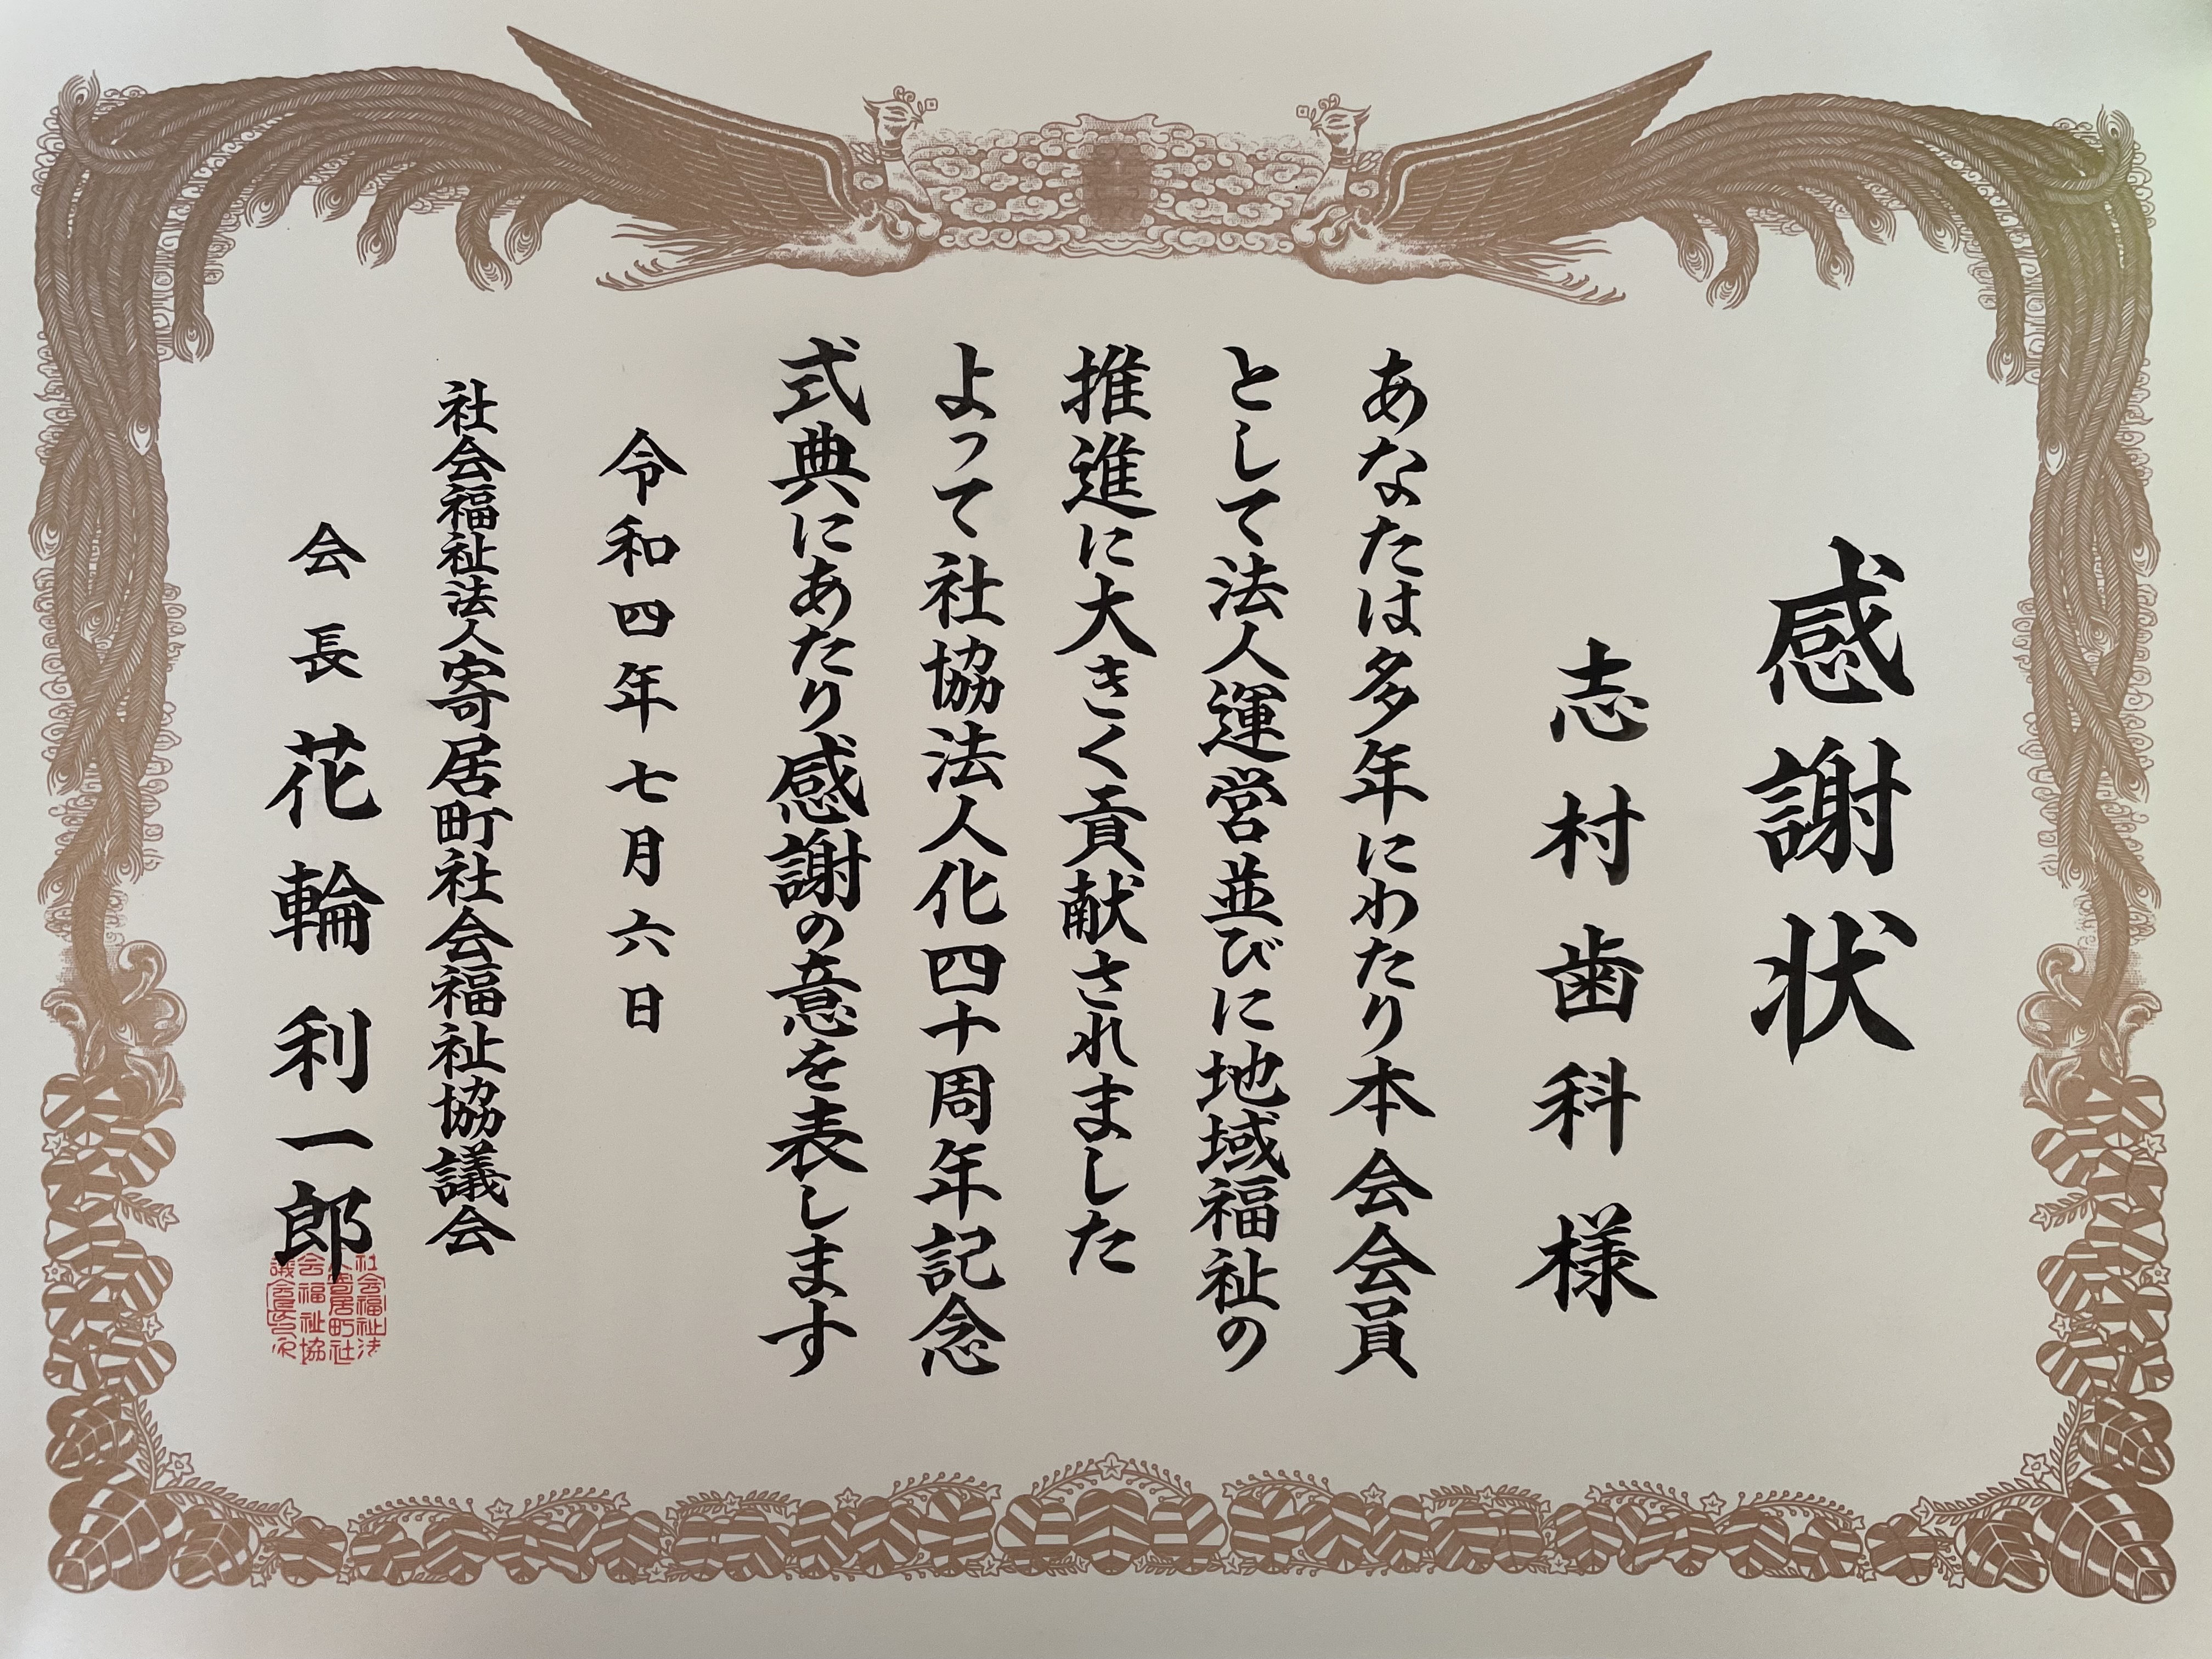 感謝状
志村歯科様
あなたは多年にわたり本会会員
として法人運営並びに地域福祉の
推進に大きく貢献されました
よって社協法人化四十周年記念
式典にあたり感謝の意を表します
令和四年七月六日
社会福祉法人寄居町社会福祉協議会
会長花輪利一郎
社会福祉法
人寄居町社
会福祉協
議会長之印